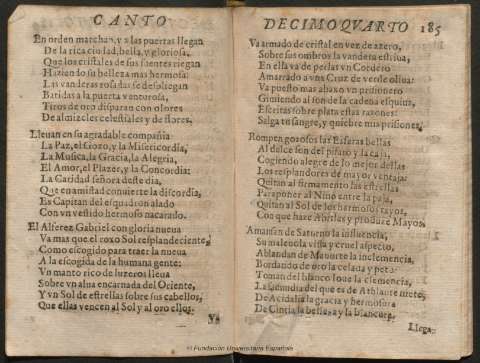 CANTO
En orden marchan, y a las puertas llegan
De la rica ciudad, bella, y gloriosa,
Que los cristales de sus fuentes riegan
Haziendo su belleza mas hermosa:
Las vanderas rosadas se desplegan
Batidas a la puerta venturosa,
Tiros de oro disparan con olores
De almizcles celestiales y de flores.
Lleuan en su agradable compañia
La Paz, el Gozo, y la Misericordia,
La Musica, la Gracia, la Alegria,
El Amor, el Plazer, y la Concordia:
La Caridad señora deste dia,
Que en amistad conuierte la discordia,
Es Capitan del esquadron alado
Con vn vestido hermoso nacarado.
El Alferez Gabriel con gloria nueua
Va mas que el roxo Sol resplandeciente,
Como escogido para traer la nueua
A la escogida de la humana gente:
Vn manto rico de luzeros lleua
Sobre vn alua encarnada del Oriente,
Y vn Sol de estrellas sobre sus cabellos,
Que ellas vencen al Sol y al oro ellos.
Va
DECIMOQVARTO 185
Va armado de cristal en vez de azero,
Sobre sus ombros la vandera estriua,
En ella va de perlas vn Cordero
Amarrado a vna Cruz de verde oliua:
Va puesto mas abaxo vn prisionero
Gimiendo al son de la cadena esquiua,
Escritas sobre plata estas razones:
Salga tu sangre, y quiebre mis prisiones.
Rompen gozosos las Esferas bellas
Al dulce son del pifaro y la caja,
Cogiendo alegre de lo mejor dellas
Los resplandores de mayor ventaja:
Quitan al firmamento las estrellas
Para poner al Niño entre la paja,
Quitan al Sol de los hermosos rayos,
Con que haze Abriles y produce Mayos.
Amansan de Saturno la influencia,
Su maleuola vista y cruel aspecto,
Ablandan de Mauorte la inclemencia,
Bordando de oro la celada y peto:
Toman del blanco Ioue la clemencia,
De Acidalia la gracia y hermosura
De Cintia la belleza y la blancura.
Llega
© Fundación Universitaria Española